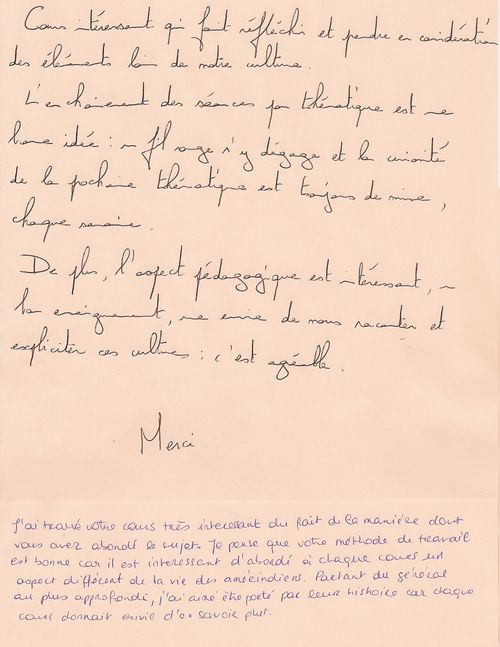 Cours intéressant qui fait réfléchir et prendre en considération
des éléments loin de notre culture.
L'enchaînement des séances par thématique est une
bonne idée : un fil rouge s'y dégage et la curiosité
de la prochaine thématique est toujours de mise,
chaque semaine.
De plus, l'aspect pédagogique est intéressant, un
bon enseignement, une envie de nous raconter et
expliciter ces cultures : c'est agréable.
Merci
J'ai trouvé votre cours très interessant du fait de la manière dont
vous avez abordé le sujet. Je pense que votre méthode de travail
est bonne car il est interessant d'abordé à chaque cours un
aspect différent de la vie des amérindiens. Partant du général
au plus approfondi, j'ai aimé être porté par leur histoire car chaque
cours donnait envie d'en savoir plus.